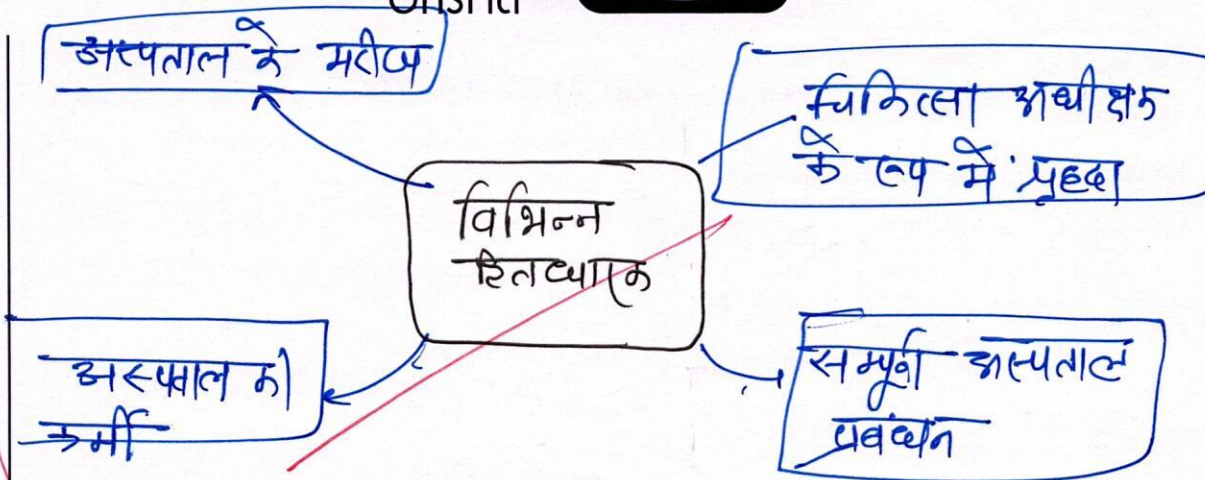 अस्पताल के मरीज
चिकित्सा अधीक्षक
के रूप में
विभिन्न
हितधारक
अस्पताल का
कर्मी
सम्पूर्ण अस्पताल
प्रबंधन